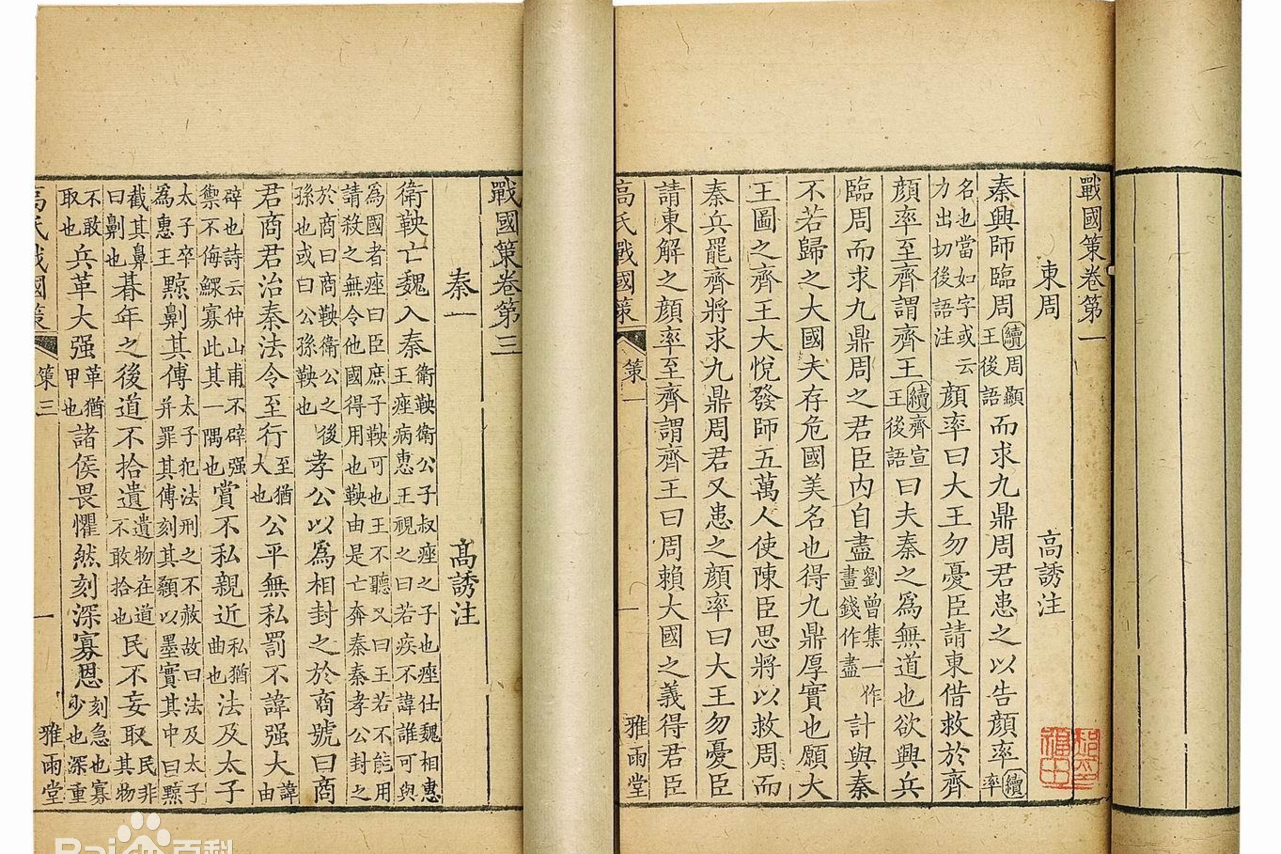 戰國策卷第一
東周 高誘注
秦興師臨周續周顯王後語而求九鼎周君患之以告顔率續率
名也當如字或云力出切後語注顔率曰大王勿憂臣請東借救於齊
顔率至齊謂齊王續齊宣王後語曰夫秦之爲無道也欲興兵
臨周而求九鼎周之君臣內自盡劉曾集一作畫錢作盡計與秦
不若歸之大國夫存危國美名也得九鼎厚實也願大
王圖之齊王大悅發師五萬人使陳臣思將以救周而
秦兵罷齊將求九鼎周君又患之顔率曰大王勿憂臣
請東解之顔率至齊謂齊王曰周賴大國之義得君臣
高氏戰國策 策一 一 雅雨堂
戰國策卷第三
秦一 高誘注
衛鞅亡魏入秦衛鞅衛公子叔痤之子也痤仕魏相惠王痤病惠王視之曰若疾不諱誰可與
爲國者痤曰臣庶子鞅可也王不聽又曰王若不能用請殺之無令他國得用也鞅由是亡奔秦秦孝公封之
於商曰商鞅衛公之後孫也或曰公孫鞅也孝公以爲相封之於商號曰商
君商君治秦法令至行至猶大也公平無私罰不諱强大諱由
辟也詩云仲山甫不辟强禦不侮鰥寡此其一隅也賞不私親近私猶曲也法及太子
太子卒爲惠王黥劓其傅太子犯法刑之不赦故曰法及太子并罪其傅刻其顙以墨實其中曰黥
截其鼻曰劓也朞年之後道不拾遺遺物在道不敢拾也民不妄取民非其物
不敢取也兵革大强革猶甲也諸侯畏懼然刻深寡恩刻急也寡少也深重
高氏戰國策 策三 一 雅雨堂
Bai 百科